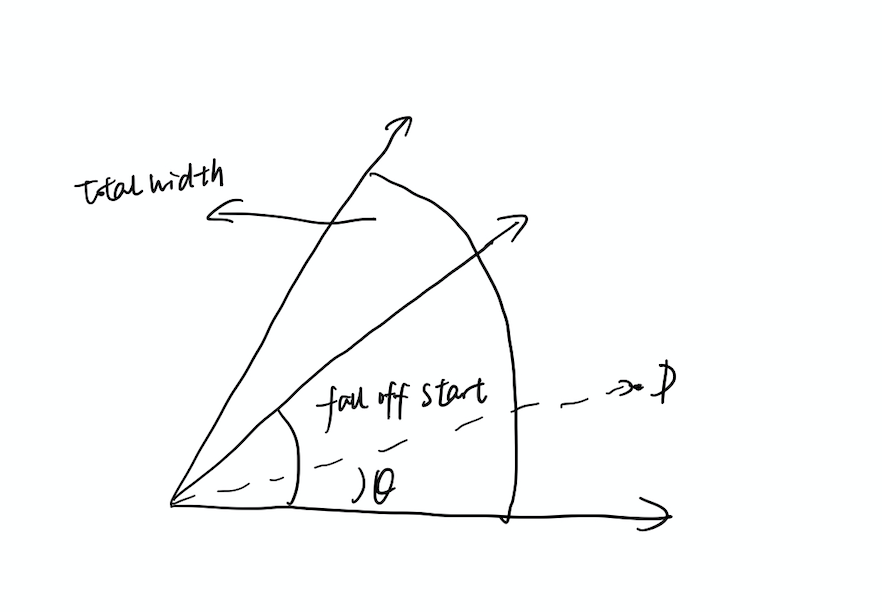 Total width
fall off start
P
θ